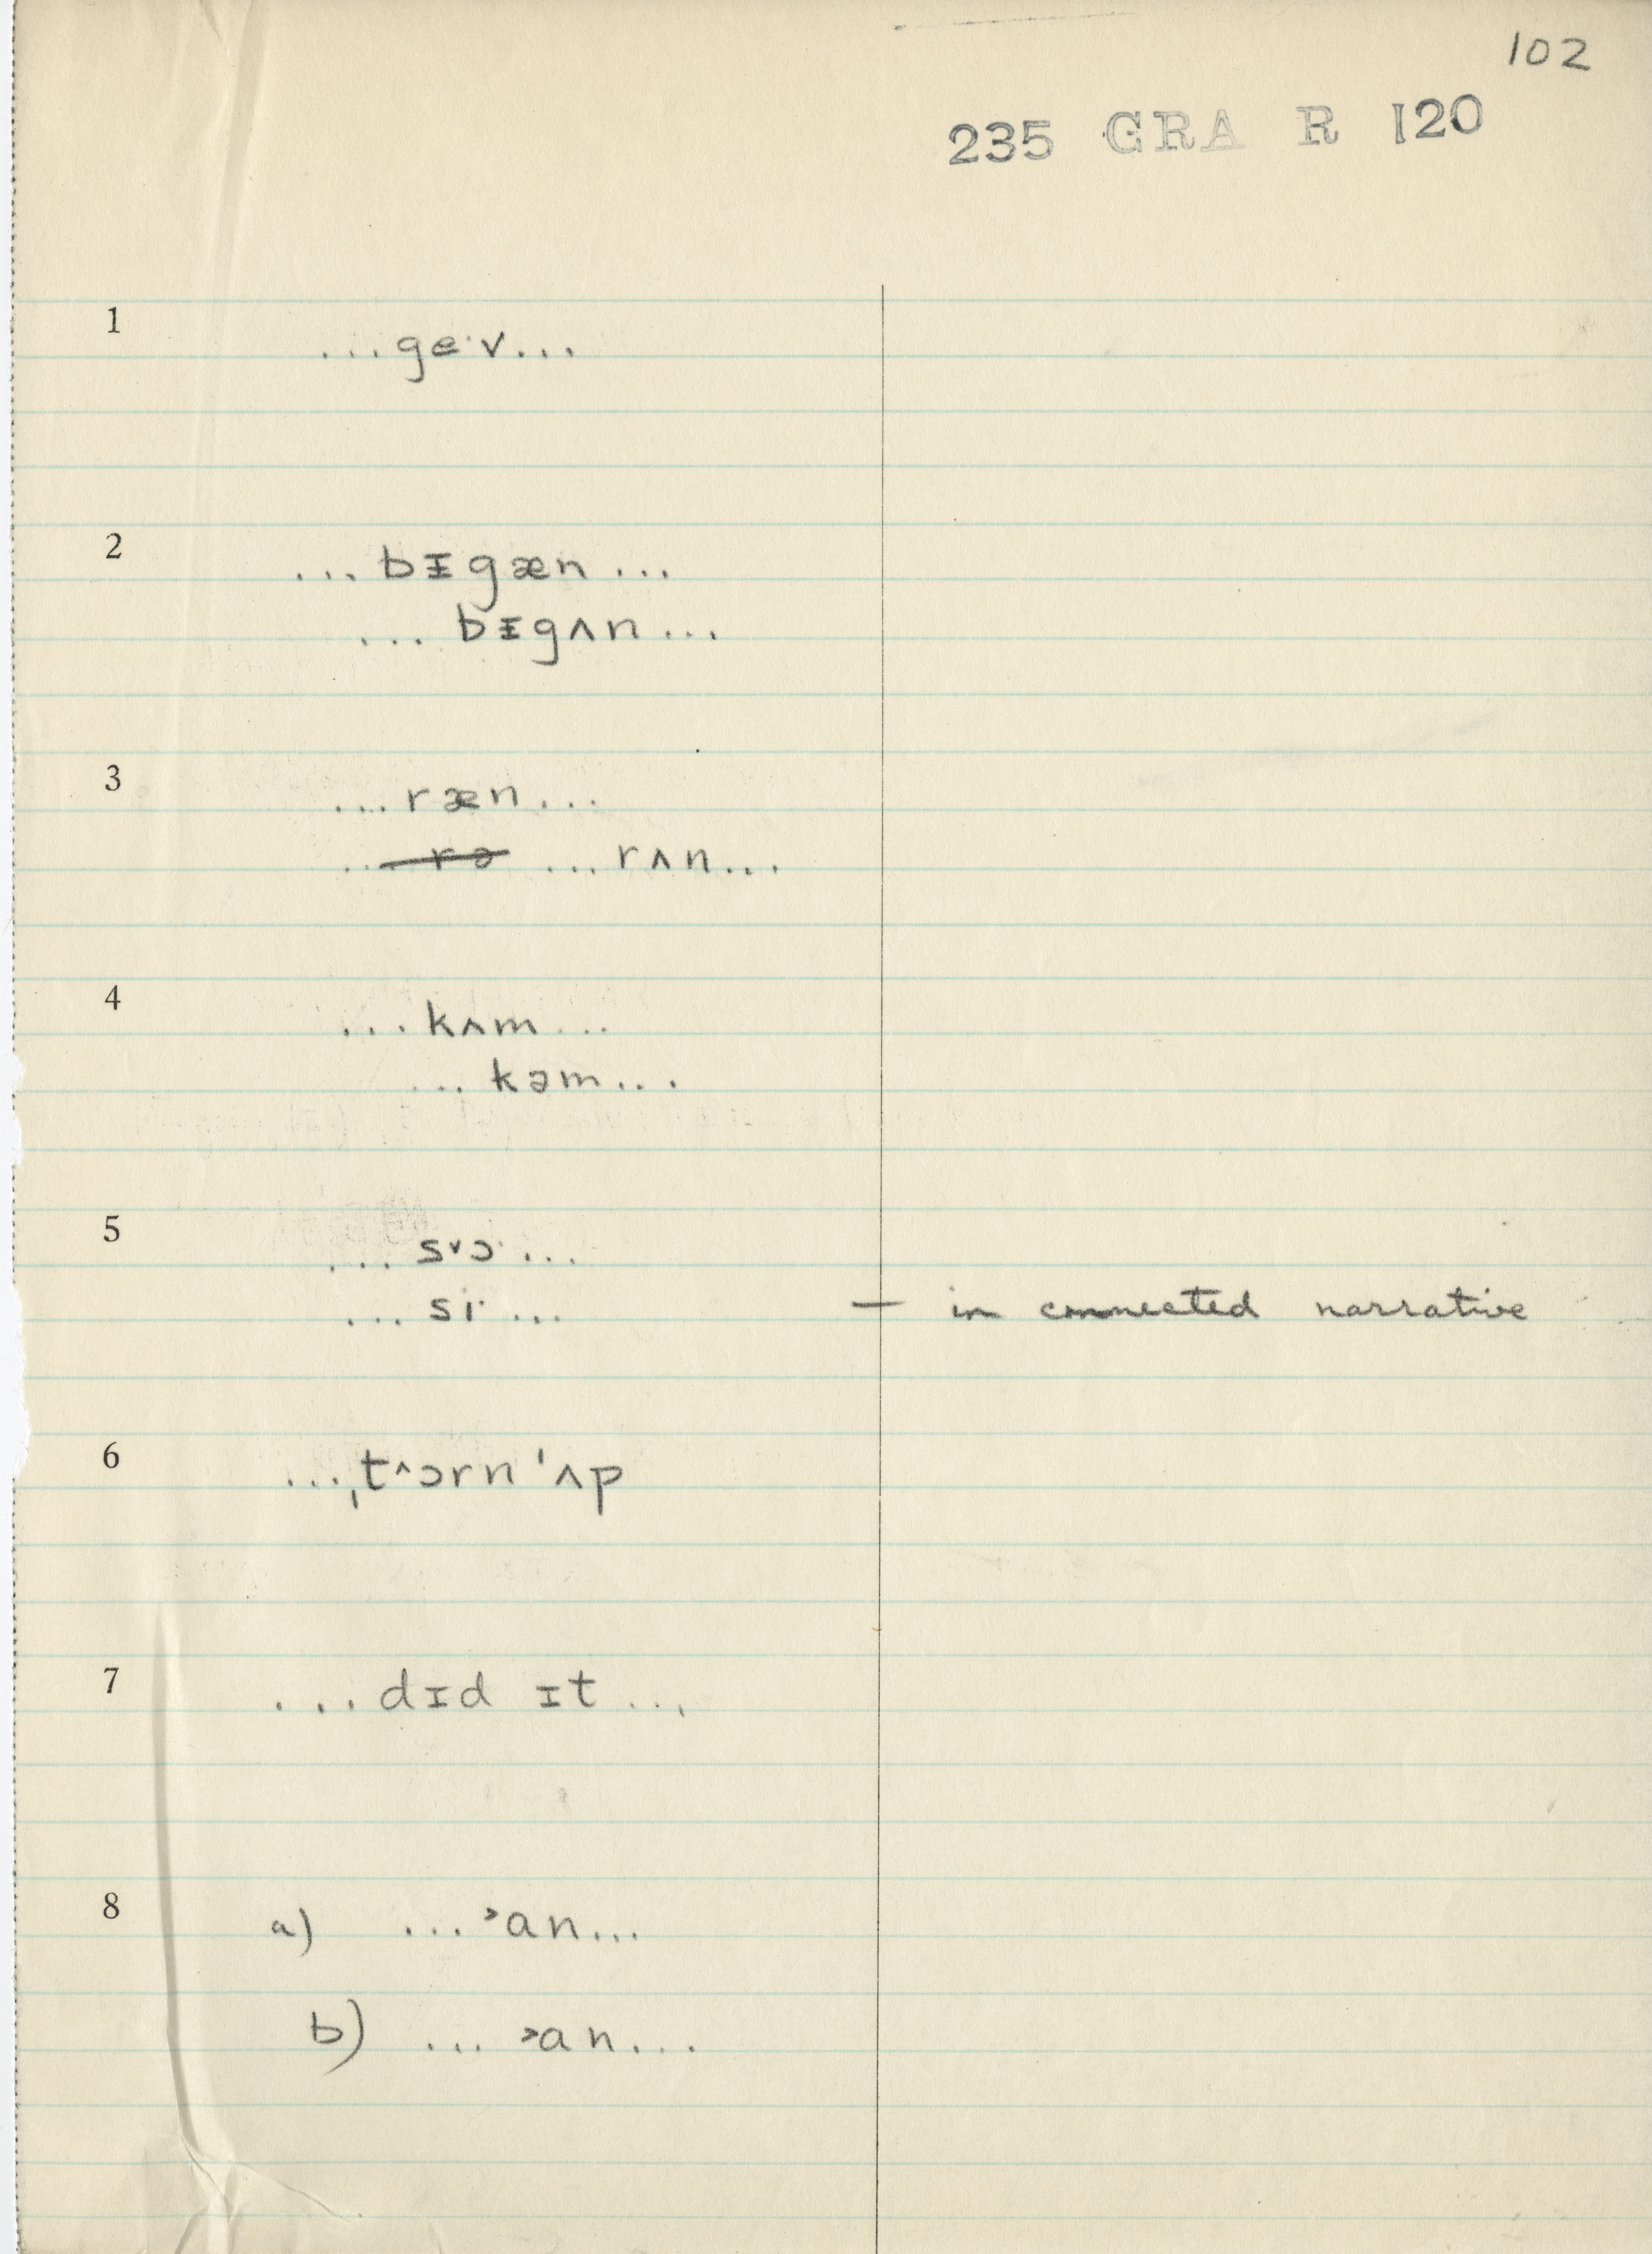 102
235 GRA R 120
1 ...ge·v...
2 ...bᵻgæn...
...bᵻgʌn...
3 ...ræn...
... rə ...rʌn...
4 ...kʌm...
...kəm...
5 ...s˅ɔ·...
...si·... — in connected narrative
6 ...ˌt˄ɔrn ˈʌp
7 ...dɪd ɪt...
8 a) ...˃an...
b) ...˃an...